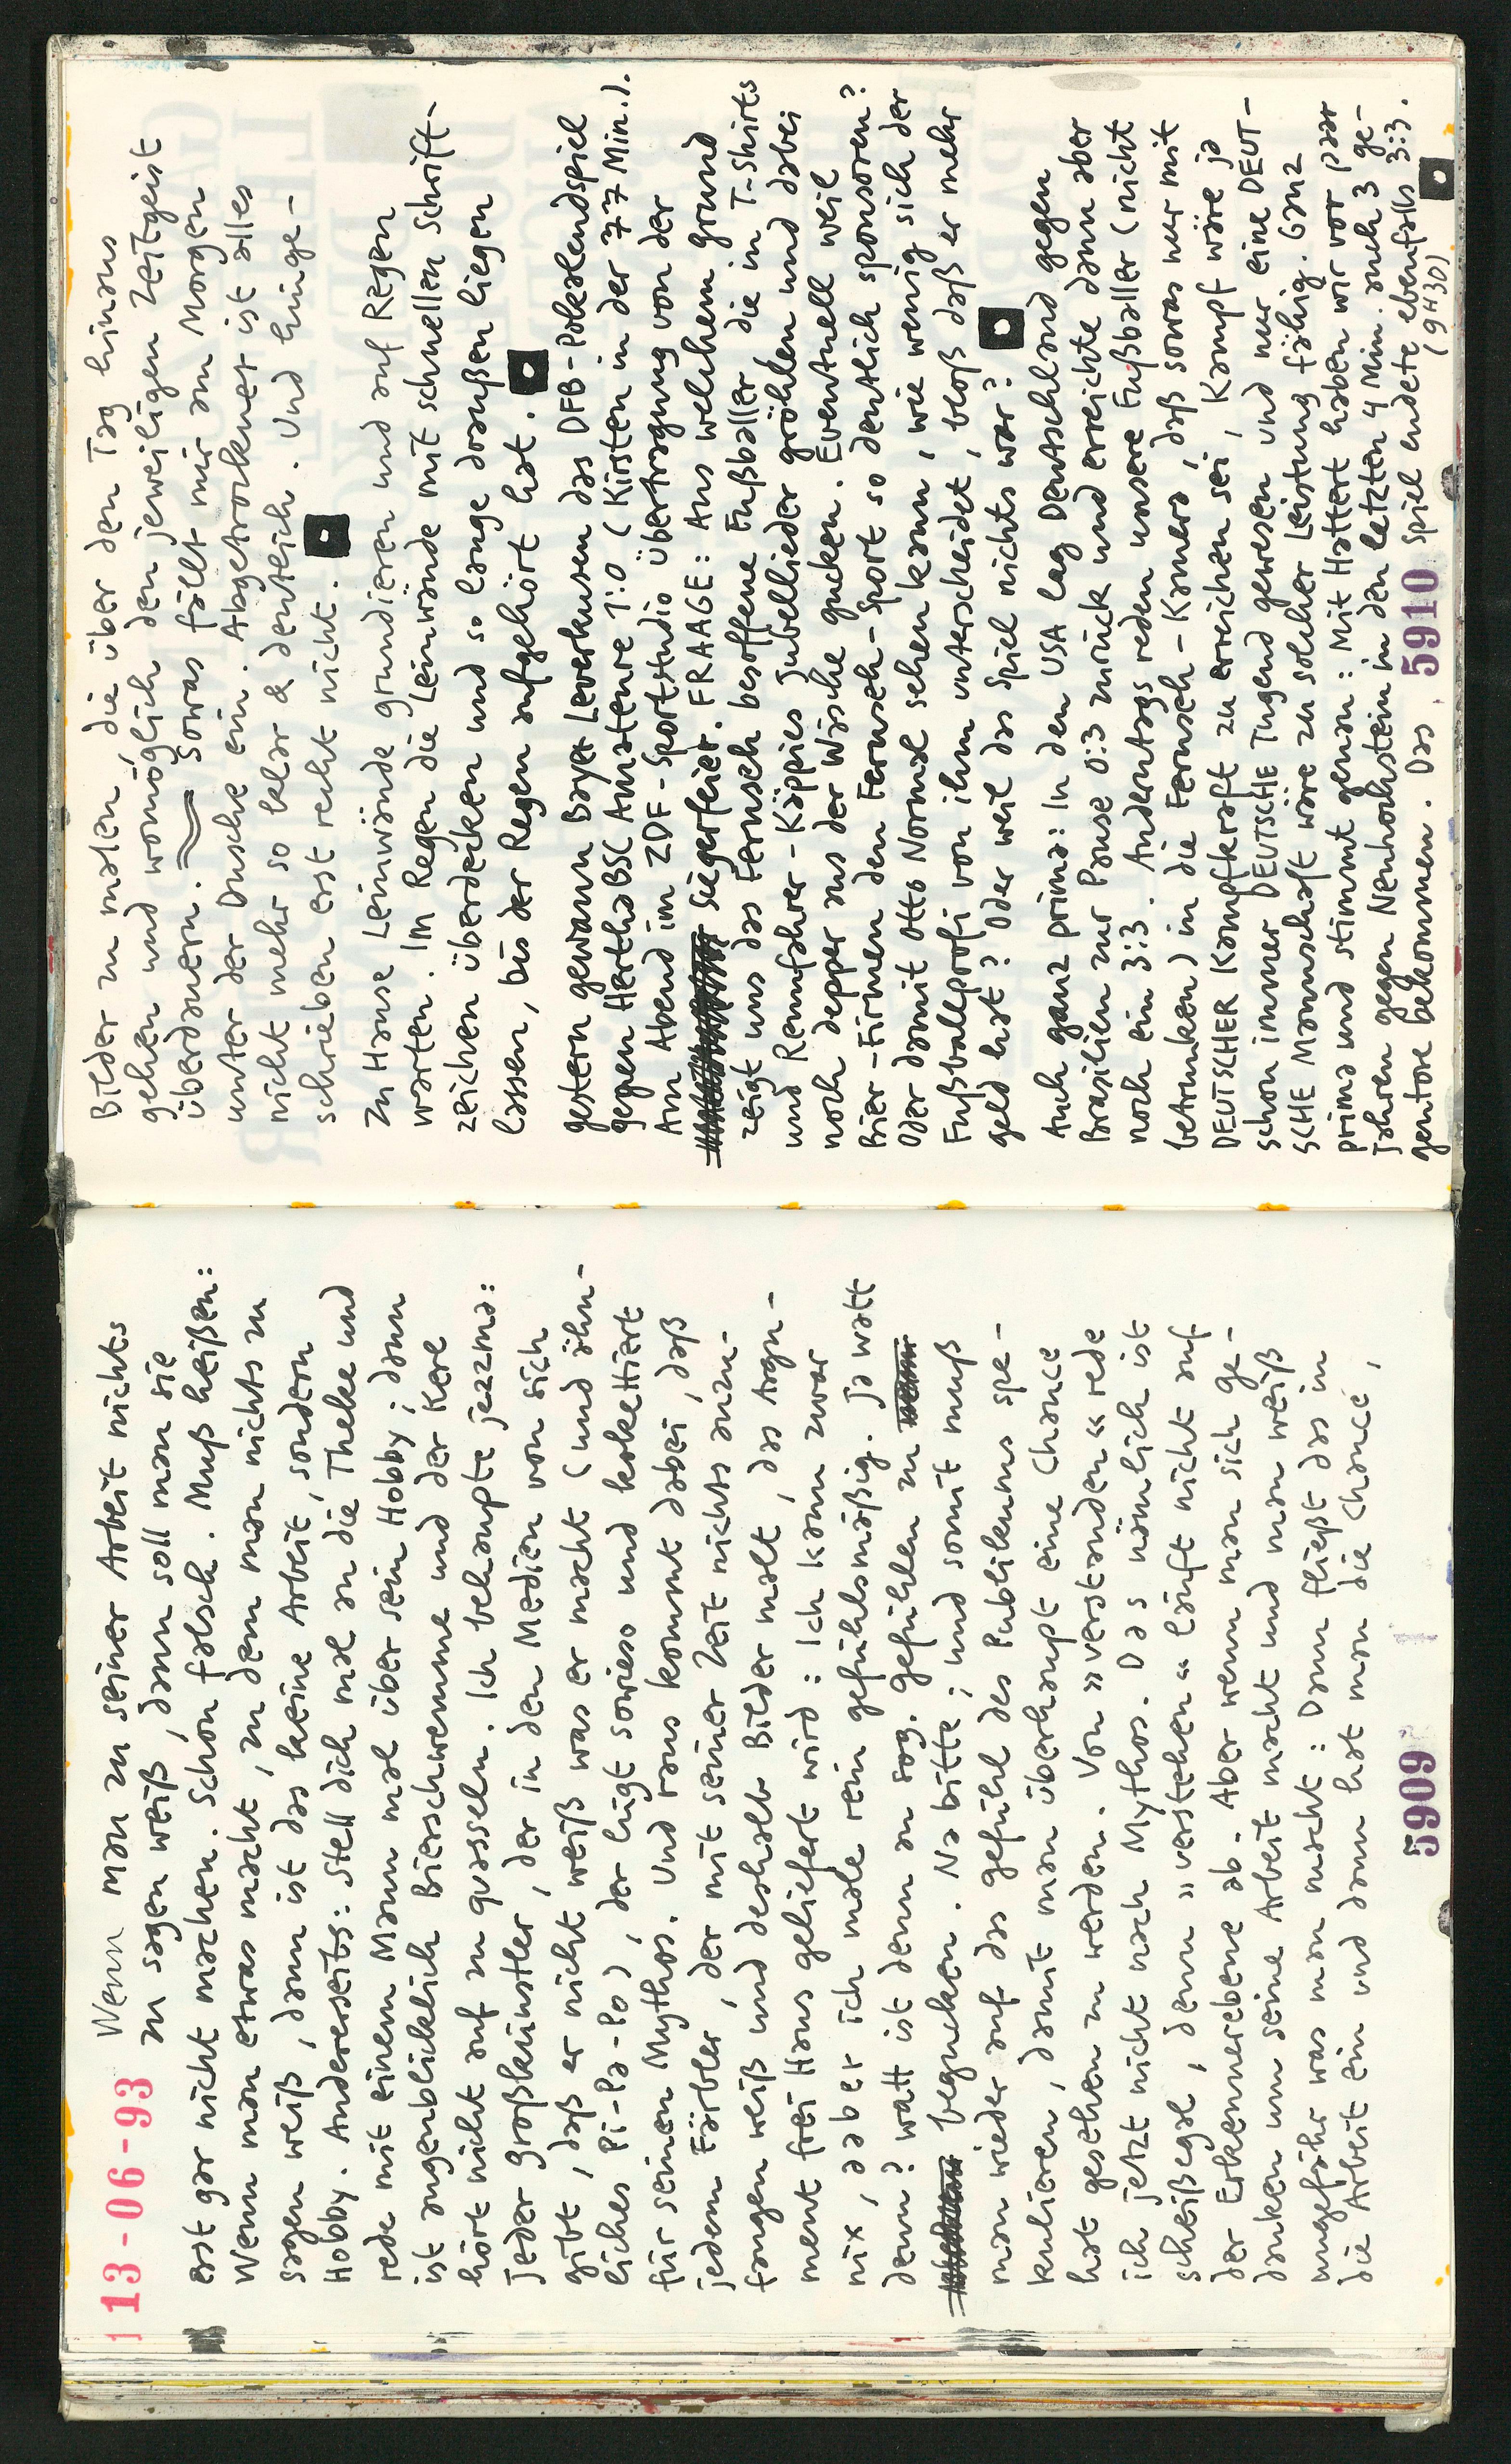 13-06-93 Wenn man zu seiner Arbeit nichts
zu sagen weiß, dann soll man sie
erst gar nicht machen. Schon falsch. Muß heißen:
Wenn man etwas macht, zu dem man nichts zu
sagen weiß, dann ist das keine Arbeit, sondern
Hobby. Andererseits: Stell dich mal an die Theke und
rede mit einem Mann mal über sein Hobby; dann
ist augenblicklich Bierschwemme und der Kerl
hört nicht auf zu quasseln. Ich behaupte jezzma:
Jeder Großkünstler, der in den Medien von sich
gibt, daß er nicht weiß was er macht (und ähn-
liches Pi-Pa-Po), der lügt sowieso und kokettiert
für seinen Mythos. Und raus kommt dabei, daß
jedem Färbler, der mit seiner Zeit nichts anzu-
fangen weiß und deshalb Bilder malt, das Argu-
ment frei Haus geliefert wird: Ich kann zwar
nix, aber ich male rein gefühlsmäßig. Ja watt
denn? Watt ist denn an sog. Gefühlen zu
begucken. Na bitte; und somit muß
man wieder auf das Gefühl des Publikums spe-
kulieren, damit man überhaupt eine Chance
hat gesehen zu werden. Von »verstanden« rede
ich jetzt nicht nach Mythos. Das nämlich ist
scheißegal, denn »verstehen« läuft nicht auf
der Erkennerebene ab. Aber wenn man sich Ge-
danken um seine Arbeit macht und man weiß
ungefähr was man macht: Dann fließt das in
die Arbeit ein und dann hat man die Chance,
5909
Bilder zu malen, die über den Tag hinaus
gehen und womöglich den jeweiligen Zeitgeist
überdauern. Sowas fällt mir am Morgen
unter der Dusche ein. Abgetrocknet ist alles
nicht mehr so klar & deutlich. Und hinge-
schrieben erst recht nicht.
Zu Hause Leinwände grundieren und auf Regen
warten. Im Regen die Leinwände mit schnellen Schrift-
zeichen überdecken und so lange draußen liegen
lassen, bis der Regen aufgehört hat.
Gestern gewann Bayer Leverkusen das DFB-Pokalendspiel
gegen Hertha BSC Amateure 1:0 (Kirsten in der 77 Min.).
Am Abend im ZDF-Sportstudio Übertragung von der
Siegerfeier. FRAAGE: Aus welchem Grund
zeigt uns das Fernseh besoffene Fußballer die in T-Shirts
und Rennfahrer-Käppies Jubellieder gröhlen und dabei
noch depper aus der Wäsche gucken. Eventuell weil
Bier-Firmen den Fernseh-Sport so deutlich sponsoren?
Oder damit Otto Normal sehen kann, wie wenig sich der
Fußballprofi von ihm unterscheidet, bloß daß er mehr
Geld hat? Oder weil das Spiel nichts war?
Auch ganz prima: In den USA lag Deutschland gegen
Brasilien zur Pause 0:3 zurück und erreichte dann aber
noch ein 3:3. Andertags reden unsere Fußballer (nicht
betrunken) in die Fernseh-Kamera, daß sowas nur mit
DEUTSCHER Kampfkraft zu erreichen sei, Kampf wäre ja
schon immer DEUTSCHE Tugend gewesen und nur eine DEUT-
SCHE Mannschaft wäre zu solcher Leistung fähig. Ganz
prima und stimmt genau: Mit Hattert haben wir vor paar
Jahren gegen Neuhochstein in den letzten 4 Min. auch 3 Ge-
gentore bekommen. Das Spiel endete ebenfalls 3:3.
(9H30)
5910